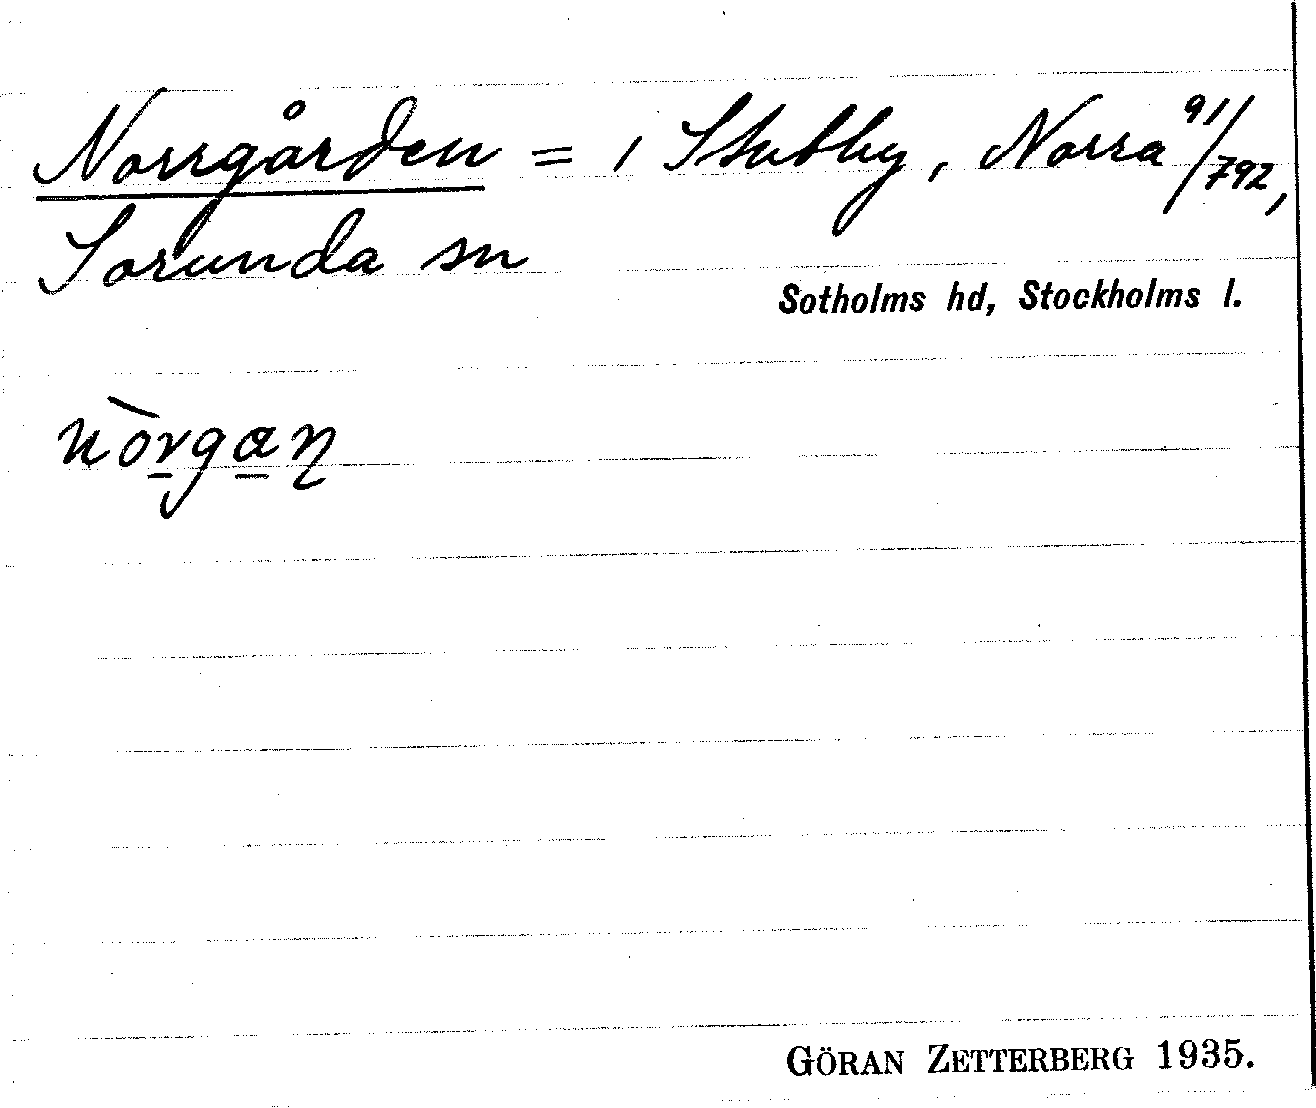 Norrgården = 1 Stubby, Norra 91/792,
Sorunda sn
Sotholms hd, Stockholms l.
nòrgan
GÖRAN ZETTERBERG 1935.